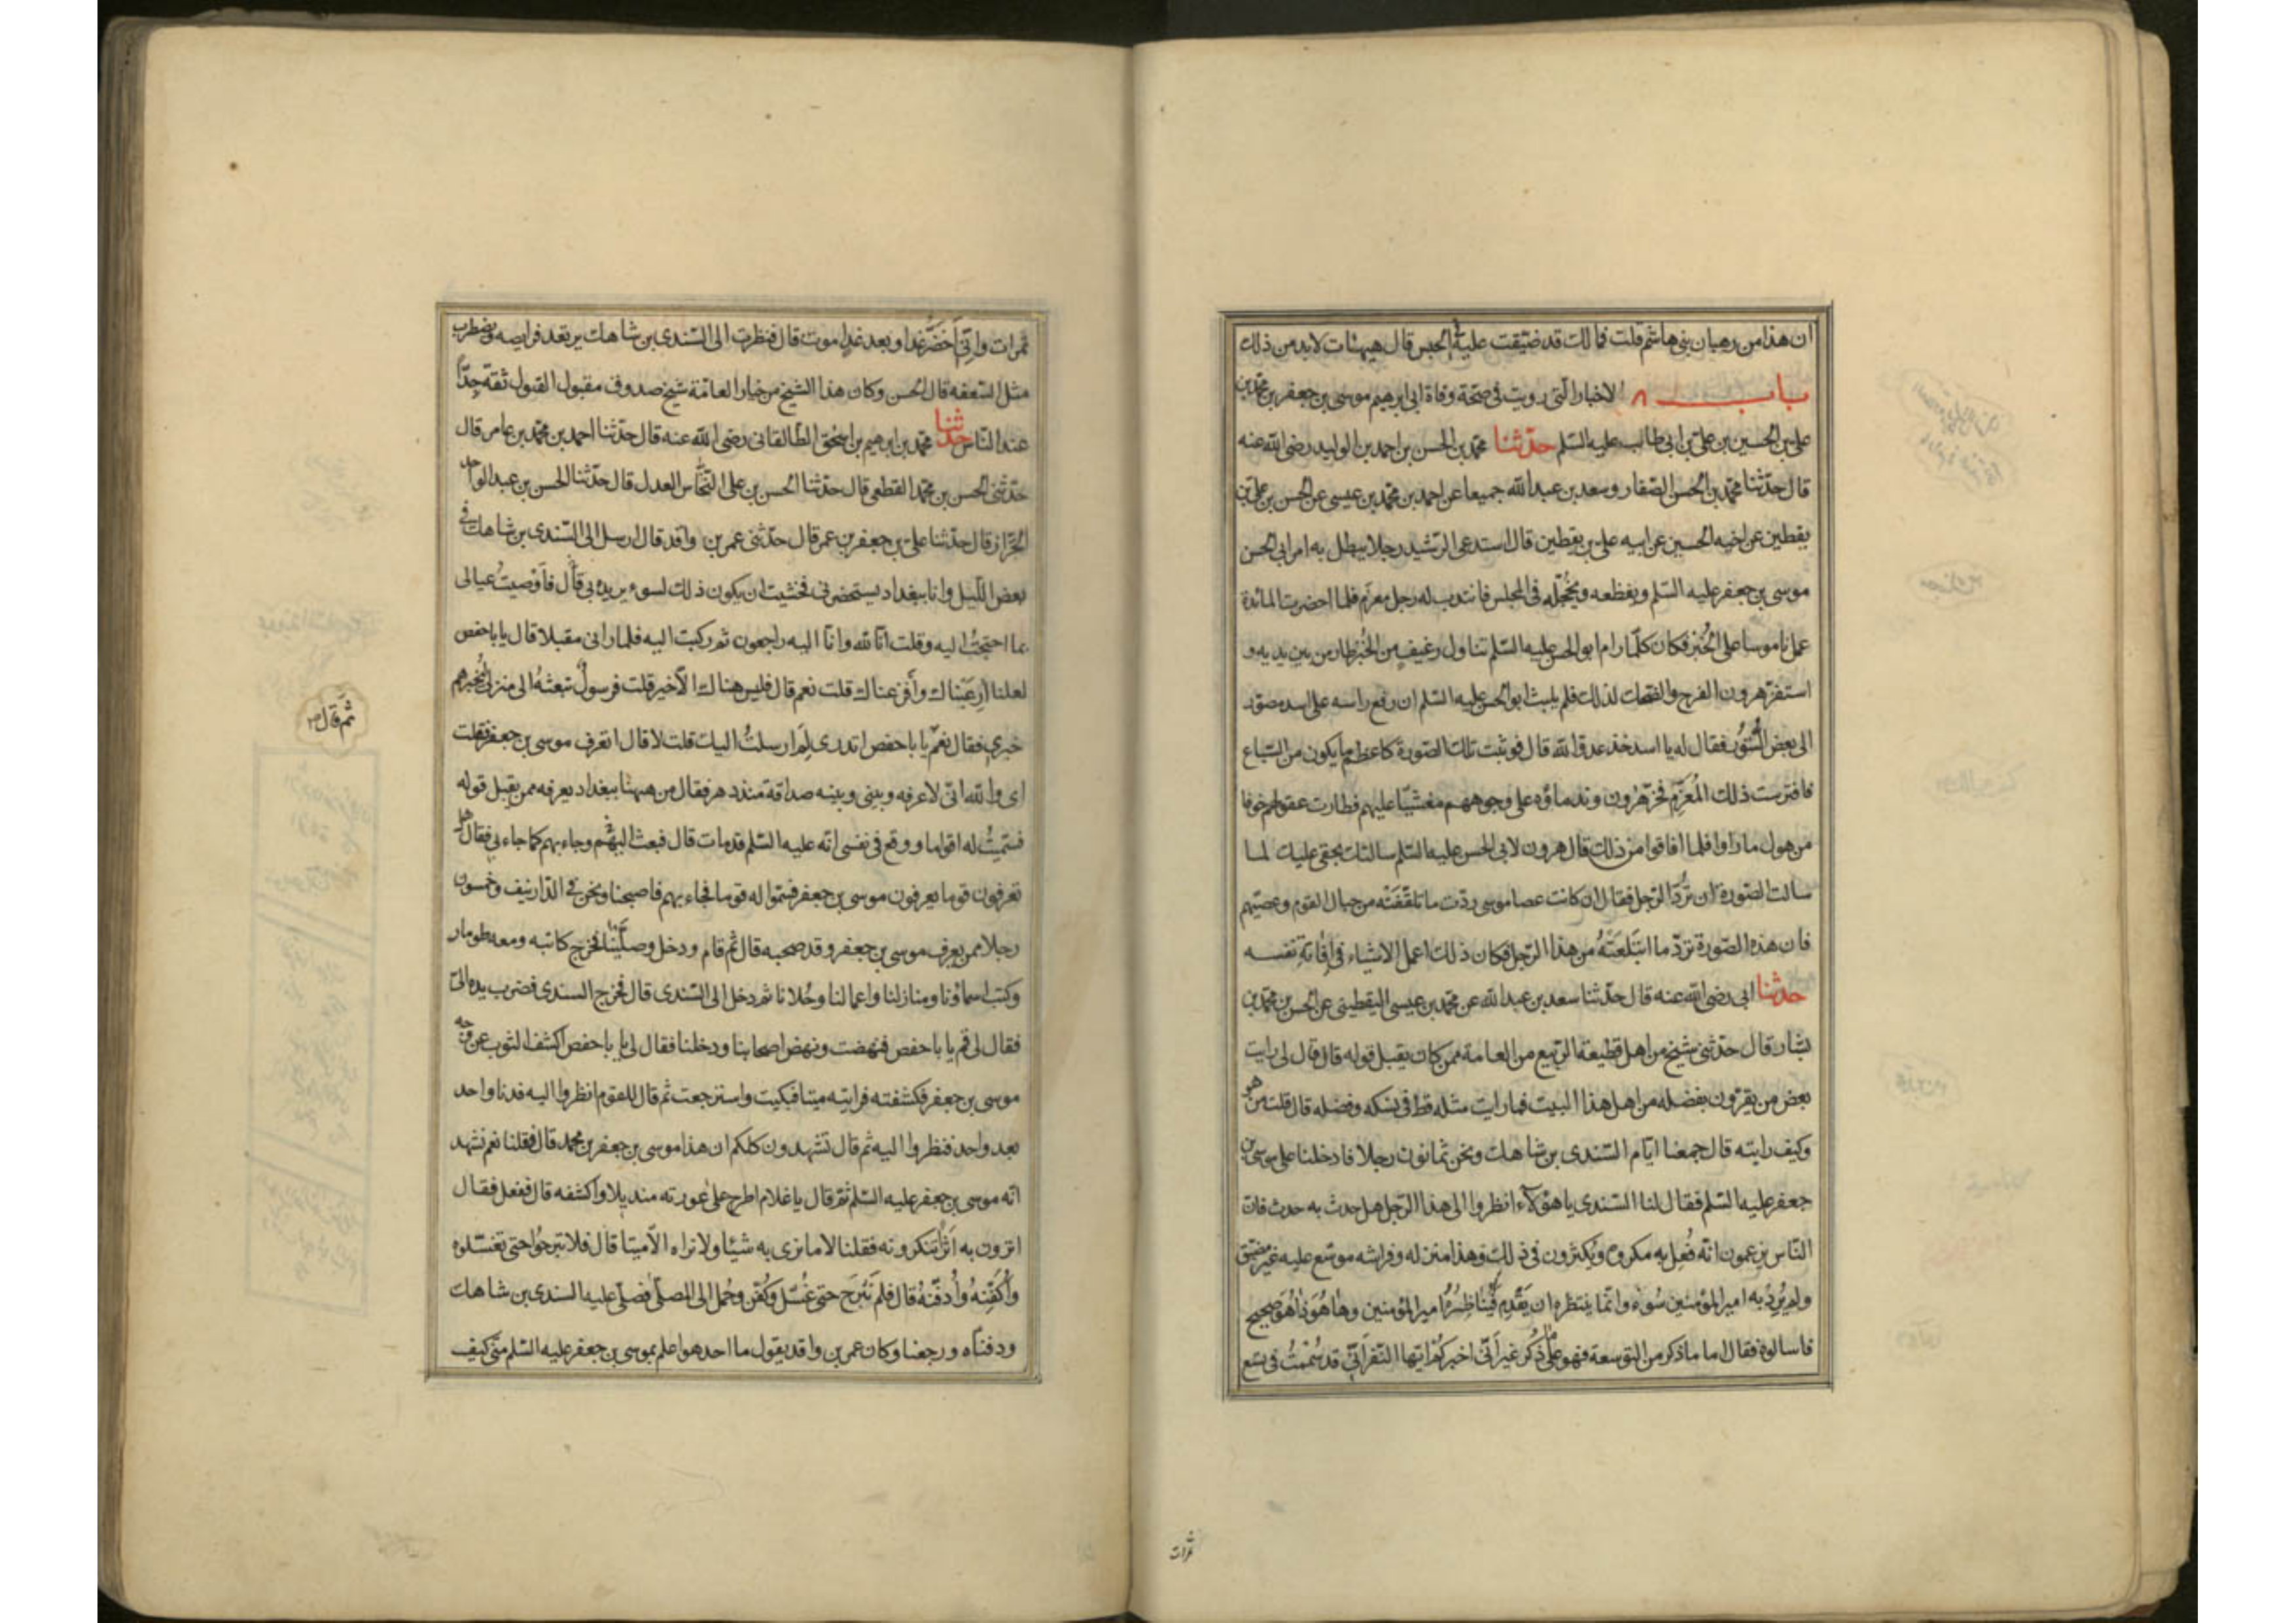 ان هذا من رهبان بنى هاشم قلت فمالك قد ضيقت عليه فى الحبس قال هيهات لابد من ذلك
باب ٨ الاخبار التى رويت فى صحة وفاة ابى ابرهيم موسى بن جعفر بن محمد بن
على بن الحسين بن على بن ابى طالب عليه السلم حدثنا محمد بن الحسن بن احمد بن الوليد رضى الله عنه
قال حدثنا محمد بن الحسن الصفار وسعد بن عبد الله جميعا عن احمد بن محمد بن عيسى عن الحسن بن على بن
يقطين عن اخيه الحسين عن ابيه على بن يقطين قال استدعى الرشيد رجلا يبطل به امر ابى الحسن
موسى بن جعفر عليه السلم ويقطعه ويخجله فى المجلس فانتدب له رجل معزم فلما احضرت المائدة
عمل ناموسا على الخبز فكان كلما رام ابو الحسن عليه السلم تناول رغيف من الخبز طار من بين يديه و
استفز هرون الفرح والضحك لذلك فلم يلبث ابو الحسن عليه السلم ان رفع راسه على اسد مصور
الى بعض الستور فقال له يا اسد خذ عدو الله قال فوثبت تلك الصورة كاعظم ما يكون من السباع
فافترست ذلك المعزم فخر هرون وندماؤه على وجوههم مغشيا عليهم فطارت عقولهم خوفا
من هول ما راوا فلما افاقوا من ذلك قال هرون لابى الحسن عليه السلم سالتك بحقى عليك لما
سالت الصورة ان ترد الرجل فقال ان كانت عصا موسى ردت ما تلقفته من حبال القوم وعصيهم
فان هذه الصورة ترد ما ابتلعته من هذا الرجل فكان ذلك اعمل الاشياء فى افاتة نفسه
حدثنا ابى رضى الله عنه قال حدثنا سعد بن عبد الله عن محمد بن عيسى اليقطينى عن الحسن بن محمد بن
بشار قال حدثنى شيخ من اهل قطيعة الربيع من العامة ممن كان يقبل قوله قال قال لى رايت
بعض من يقرون بفضله من اهل هذا البيت فما رايت مثله قط فى نسكه وفضله قال قلت من هو
وكيف رايته قال جمعنا ايام السندى بن شاهك ونحن ثمانون رجلا فادخلنا على موسى بن
جعفر عليه السلم فقال لنا السندى يا هؤلاء انظروا الى هذا الرجل هل حدث به حدث فان
الناس يزعمون انه فعل به مكروه ويكثرون فى ذلك وهذا منزله وفراشه موسع عليه غير مضيق
ولم يرد به امير المؤمنين سوء وانما ينتظره ان يقدم فيناظره امير المؤمنين وها هو ذا هو صحيح
فاسالوه فقال اما ما ذكر من التوسعة فهو على ما ذكر غير انى اخبركم ايها النفر انى قد سممت فى تسع
تمرات
تمرات وانى اخضر غدا وبعد غد اموت قال فنظرت الى السندى بن شاهك يرتعد فرايصه ويضطرب
مثل السعفة قال الحسن وكان هذا الشيخ من خيار العامة شيخ صدوق مقبول القول ثقة جدا
عند الناس حدثنا محمد بن ابرهيم بن اسحق الطالقانى رضى الله عنه قال حدثنا احمد بن محمد بن عامر قال
حدثنى الحسن بن محمد القطعى قال حدثنا الحسن بن على النخاس العدل قال حدثنا الحسن بن عبد الواحد
الخزاز قال حدثنا على بن جعفر بن عمر قال حدثنى عمر بن واقد قال ارسل الى السندى بن شاهك فى
بعض الليل وانا ببغداد يستحضرنى فخشيت ان يكون ذلك لسوء يريده بى قال فاوصيت عيالى
بما احتجت اليه وقلت انا لله وانا اليه راجعون ثم ركبت اليه فلما رانى مقبلا قال يا باحفص
لعلنا ارعبناك وافزعناك قلت نعم قال فليس هناك الا خير قلت فرسول تبعثه الى منزلى يخبرهم
خبرى فقال نعم يا باحفص اتدرى لم ارسلت اليك قلت لا قال اتعرف موسى بن جعفر فقلت
ثم قال
اى والله انى لاعرفه وبينى وبينه صداقة منذ دهر فقال من ههنا ببغداد يعرفه ممن يقبل قوله
فسميت له اقواما ووقع فى نفسى انه عليه السلم قد مات قال فبعث اليهم وجاء بهم كما جاء بى فقال هل
تعرفون قوما يعرفون موسى بن جعفر فسموا له قوما فجاء بهم فاصبحنا ونحن فى الدار نيف وخمسون
رجلا ممن يعرف موسى بن جعفر وقد صحبه قال ثم قام ودخل وصلينا فخرج كاتبه ومعه طومار
وكتب اسماؤنا ومنازلنا واعمالنا وحلانا ثم دخل الى السندى قال فخرج السندى فضرب يده الى
فقال لى قم يا باحفص فنهضت ونهض اصحابنا ودخلنا فقال لى يا باحفص اكشف الثوب عن وجه
موسى بن جعفر فكشفته فرايته ميتا فبكيت واسترجعت ثم قال للقوم انظروا اليه فدنا واحد
بعد واحد فنظروا اليه ثم قال تشهدون كلكم ان هذا موسى بن جعفر بن محمد قال فقلنا نعم نشهد
انه موسى بن جعفر عليه السلم ثم قال يا غلام اطرح على عورته منديلا واكشفه قال ففعل فقال
اترون به اثرا تنكرونه فقلنا لا ما نرى به شيئا ولا نراه الا ميتا قال فلا تبرحوا حتى تغسلوه
واكفنه وادفنه قال فلم نبرح حتى غسل وكفن وحمل الى المصلى فصلى عليه السندى بن شاهك
ودفناه ورجعنا وكان عمر بن واقد يقول ما احد هو اعلم بموسى بن جعفر عليه السلم منى كيف